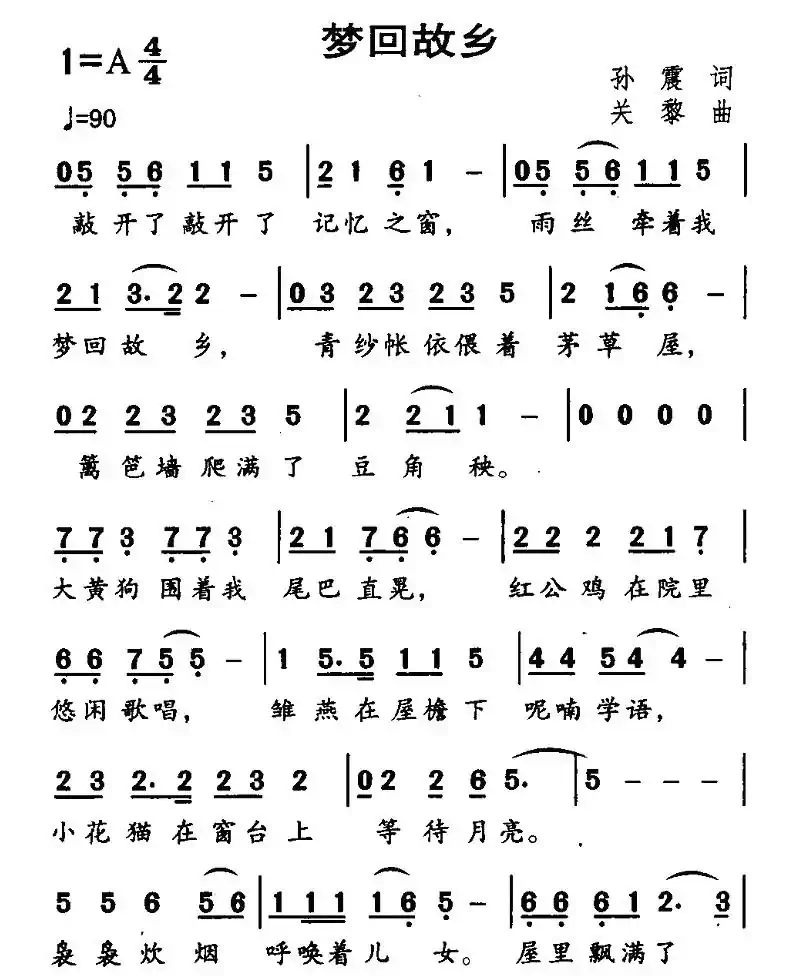 梦回故乡
1=A 4/4
孙震词
♩=90
关黎曲
05 56 11 5 | 21 61 - | 05 56 11 5 |
敲开了敲开了 记忆之窗， 雨丝 牵着我
21 3.2 2 - | 03 23 23 5 | 2 16 6 - |
梦回故 乡， 青纱帐依偎着 茅草屋，
02 23 23 5 | 2 21 1 - | 0 0 0 0 |
篱笆墙爬满了 豆角 秧。
77 3 77 3 | 21 76 6 - | 22 2 21 7 |
大黄狗围着我 尾巴直晃， 红公鸡在院里
66 75 5 - | 1 5.5 11 5 | 44 54 4 - |
悠闲歌唱， 雏燕在屋檐下 呢喃学语，
23 2.2 23 2 | 02 2 6 5. | 5 - - - |
小花猫在窗台上 等待月亮。
5 5 6 56 | 111 16 5 - | 66 61 2. 3 |
袅袅炊烟 呼唤着儿 女。 屋里飘满了